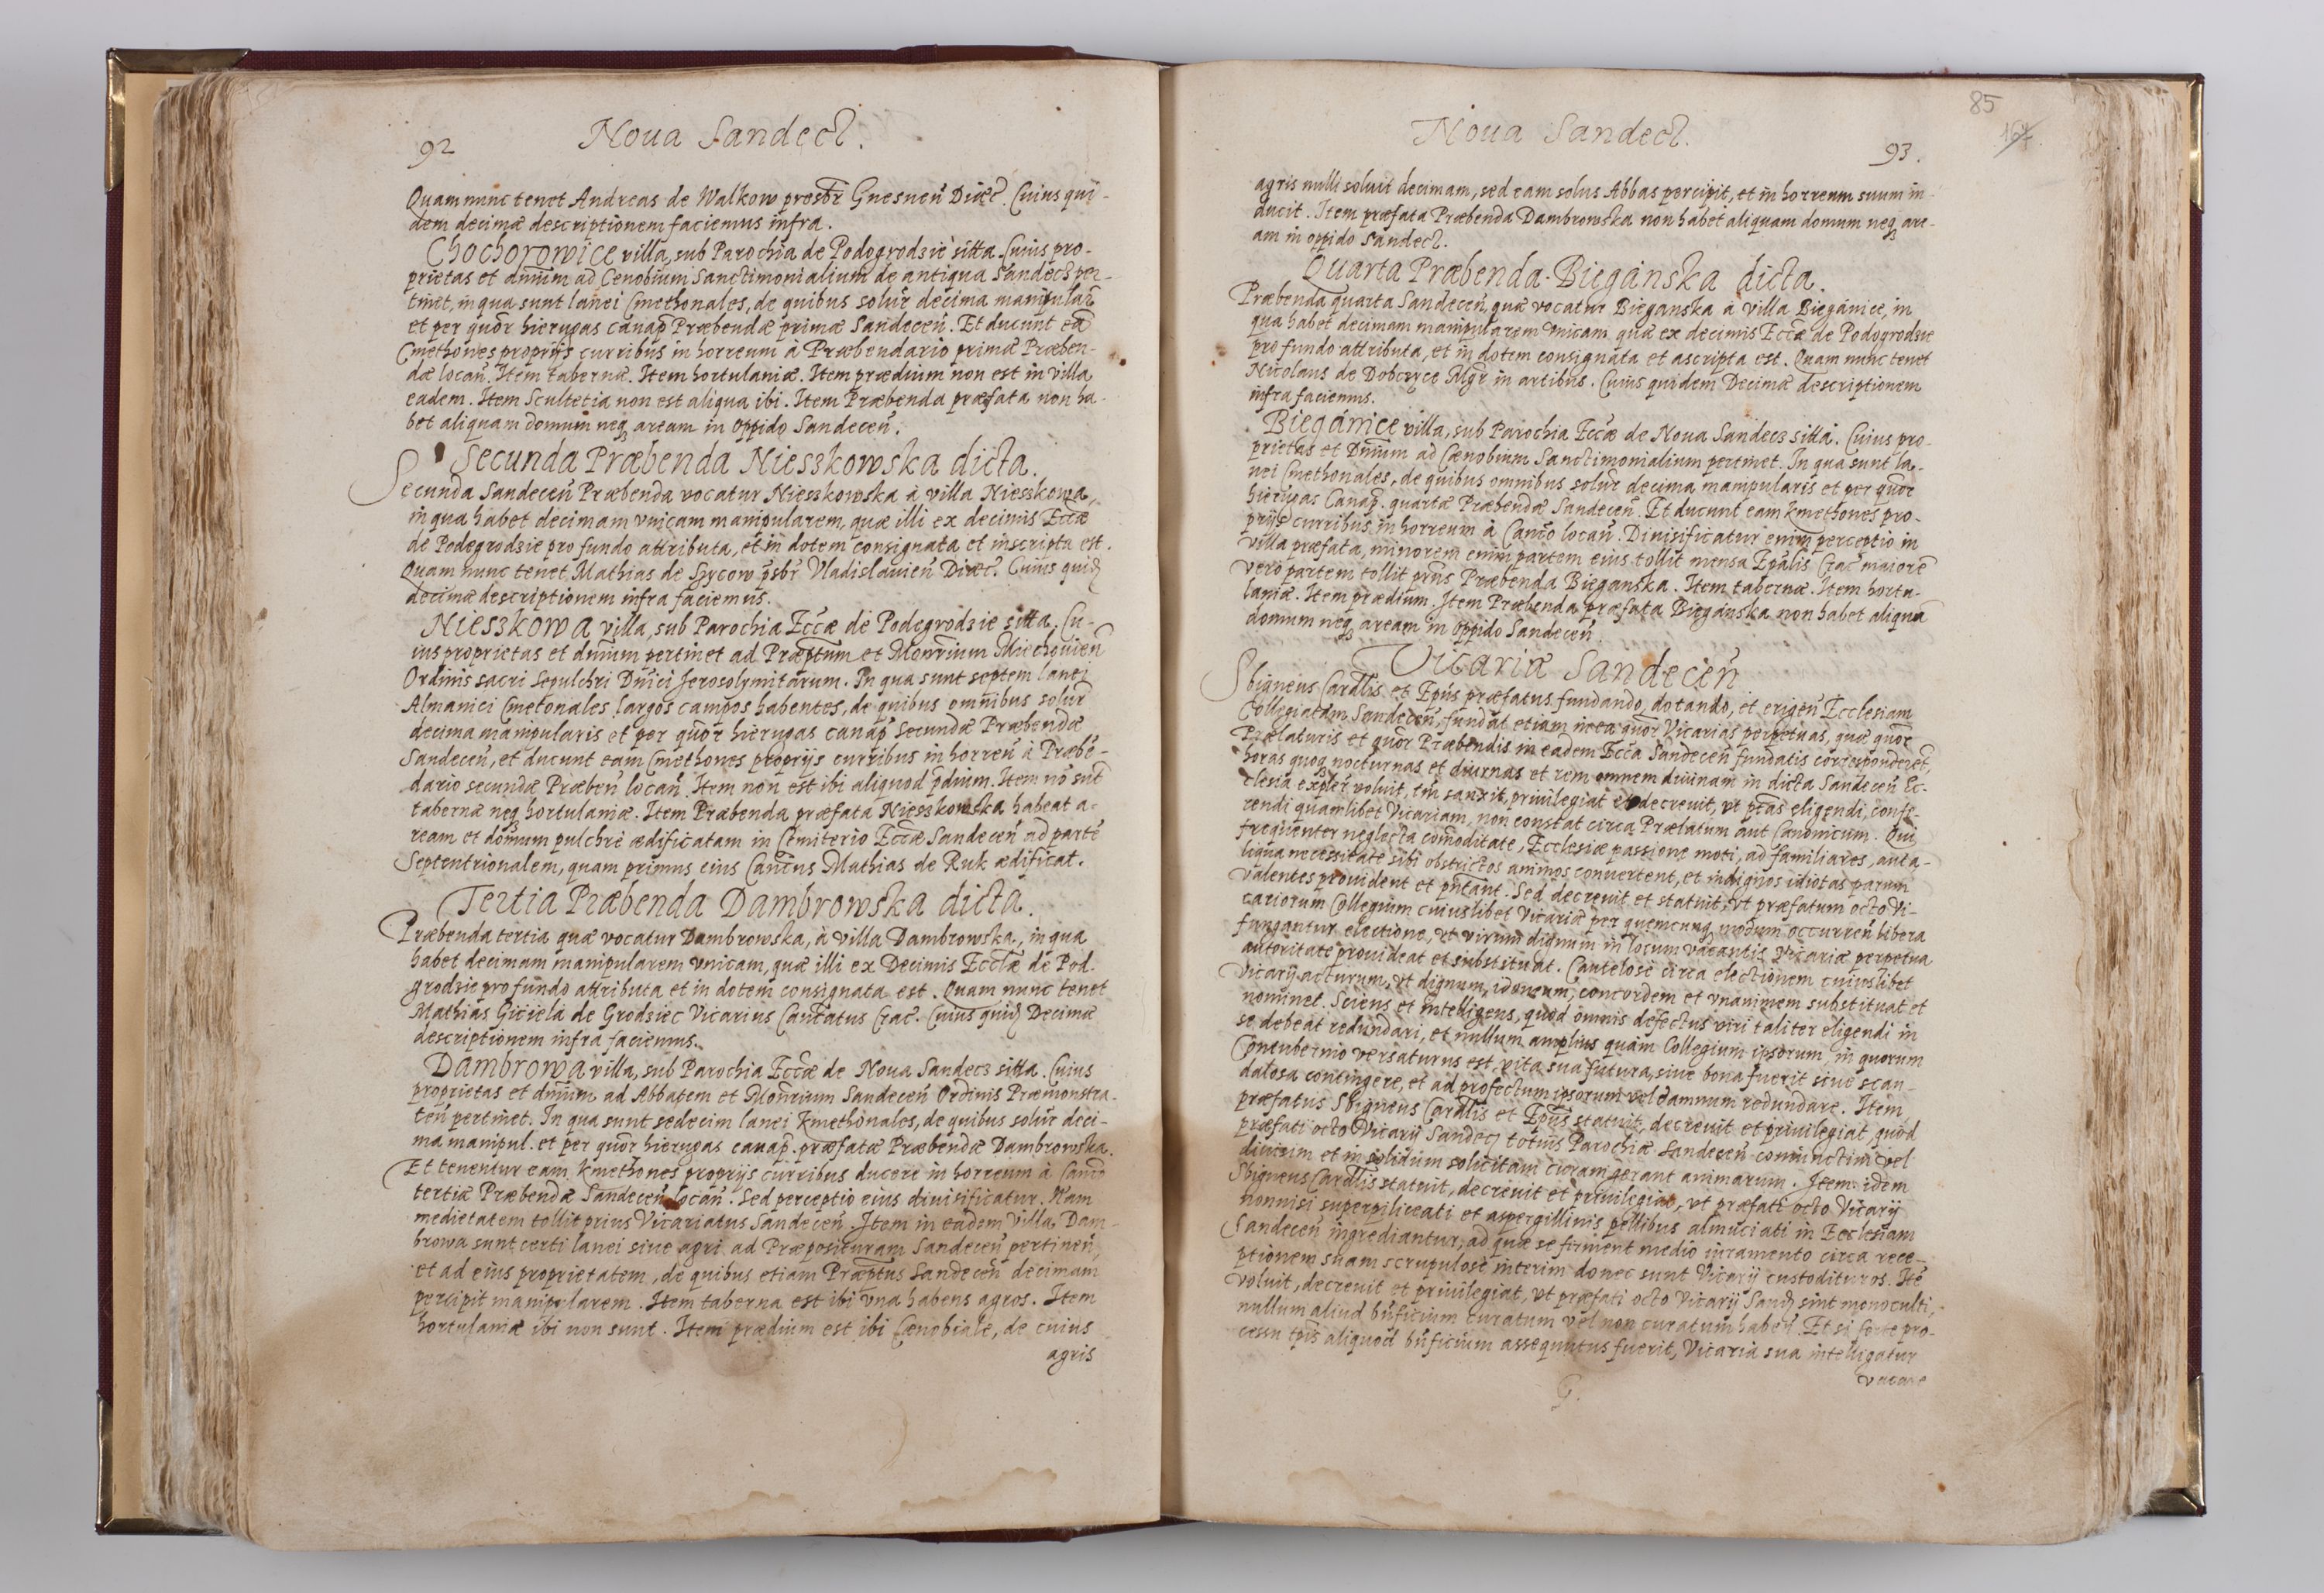 92
Noua Sandecz.
Quam nunc tenet Andreas de Walkow presbr Gnesnen Diœc. Cuius qui-
dem decimæ descriptionem faciemus infra.
Chochorowice villa, sub Parochia de Podogrodzie sitta. Cuius pro-
prietas et dnium ad Cenobium Sanctimonialium de antiqua Sandecz per-
tinet, in qua sunt lanei Cmethonales, de quibus solur decima manipular
et per quor hierugas canap Præbendæ primæ Sandecen. Et ducunt ea
Cmethones proprijs curribus in horreum à Præbendario primæ Præben-
dæ locan. Item tabernæ. Item hortulaniæ. Item prædium non est in villa
eadem. Item Scultetia non est aliqua ibi. Item Præbenda præfata non ha-
bet aliquam domum neq aream in oppido Sandecen.
Secunda Præbenda Nieszkowska dicta.
Secunda Sandecen Præbenda vocatur Nieszkowska à villa Nieszkowa,
in qua habet decimam vnicam manipularem, quæ illi ex decimis Eccæ
de Podegrodzie pro fundo attributa, et in dotem consignata et inscripta est.
Quam nunc tenet Mathias de Szycow psbr Vladislauien Diœc. Cuius quid
decimæ descriptionem infra faciemus.
Nieszkowa villa, sub Parochia Eccæ de Podegrodzie sitta. Cu-
ius proprietas et dnium pertinet ad Præptum et Monrium Miechouien
Ordinis sacri Sepulchri Dnici Jerosolymitarum. In qua sunt septem lanei
Almanici Cmetonales largos campos habentes, de quibus omnibus solur
decima manipularis et per quor hierugas canap Secundæ Præbendæ
Sandecen, et ducunt eam Cmethones proprijs curribus in horren à Præbē-
dario secundæ Præben locan. Item non est ibi aliquod pdium. Item nō sunt
tabernæ neq hortulaniæ. Item Præbenda præfata Nieszkowska habeat a-
ream et domum pulchrè ædificatam in Cemiterio Eccæ Sandecen ad partē
Septentrionalem, quam primus eius Canicus Mathias de Ruk ædificat.
Tertia Præbenda Dambrowska dicta.
Præbenda tertia quæ vocatur Dambrowska, à villa Dambrowska, in qua
habet decimam manipularem vnicam, quæ illi ex Decimis Ecclæ de Pod-
grodzie pro fundo attributa et in dotem consignata est. Quam nunc tenet
Mathias Giciela de Grodziec Vicarius Cantatus Crac. Cuius quid Decimæ
descriptionem infra faciemus.
Dambrowa villa, sub Parochia Eccæ de Noua Sandecz sitta. Cuius
proprietas et dnium ad Abbatem et Monrium Sandecen Ordinis Præmonstra-
ten pertinet. In qua sunt sedecim lanei Kmethonales, de quibus solur deci-
ma manipul. et per quor hierugas canap. præfatæ Præbendæ Dambrowska.
Et tenentur eam Kmethones proprijs curribus ducere in horreum à Canco
tertiæ Præbendæ Sandecen locan. Sed perceptio eius diuisificatur. Nam
medietatem tollit prius Vicariatus Sandecen. Item in eadem villa Dam-
browa sunt certi lanei siue agri ad Præposituram Sandecen pertinen,
et ad eius proprietatem, de quibus etiam Præptus Sandecen decimam
percipit manipularem. Item taberna est ibi vna habens agros. Item
hortulaniæ ibi non sunt. Item prædium est ibi Cænobiale, de cuius
agris
85
Noua Sandecz.
93.
agris nulli soluit decimam, sed eam solus Abbas percipit, et in horreum suum in-
ducit. Item præfata Præbenda Dambrowska non habet aliquam domum neq are-
am in oppido Sandecz.
Quarta Præbenda Biegańska dicta.
Præbenda quarta Sandecen, quæ vocatur Bieganska à villa Biegánice, in
qua habet decimam manipularem vnicam quæ ex decimis Eccæ de Podogrodzie
pro fundo attributa, et in dotem consignata et ascripta est. Quam nunc tenet
Nicolaus de Dobczyce Mgr in artibus. Cuius quidem Decimæ descriptionem
infra faciemus.
Biegánice villa, sub Parochia Eccæ de Noua Sandecz sitta. Cuius pro-
prietas et Dnium ad Cænobium Sanctimonialium pertinet. In qua sunt la-
nei Cmethonales, de quibus omnibus solur decima manipularis et per quor
hierugas Canap. quartæ Præbendæ Sandecen. Et ducunt eam Kmethones pro-
prijs curribus in horreum à Canco locan. Diuisificatur enim perceptio in
villa præfata, minorem enim partem eius tollit mensa Epalis Crac maiorē
vero partem tollit prns Præbenda Bieganska. Item tabernæ. Item hortu-
laniæ. Item prædium. Item Præbenda præfata Biegánska non habet aliquā
domum neq aream in oppido Sandecen.
Vicariæ Sandecen
Sbigneus Cardlis et Epus præfatus fundando, dotando, et erigen Ecclesiam
Collegiatam Sandecen, fundat etiam in ea quor Vicarias perpetuas, quæ quor
Prælaturis et quor Præbendis in eadem Ecca Sandecen fundatis corresponderet,
horas quoq nocturnas et diurnas et rem omnem diuinam in dicta Sandecen Ec-
clesia expler voluit, tm sanxit, priuilegiat et decreuit, vt ptas eligendi, confe-
rendi quamlibet Vicariam, non constat circa Prælatum aut Canonicum. Qui
frequenter neglecta comoditate, Ecclesiæ passione moti, ad familiares, aut a-
liqua necessitate sibi obstrictos animos conuertent, et indignos idiotas parum
valentes prouident et pntant. Sed decreuit et statuit, vt præfatum octo Vi-
cariorum Collegium cuiuslibet Vicariæ per quemcunq modum occurren libera
fungantur electione, vt virum dignum in locum vacantis Vicariæ perpetua
autoritate prouideat et substituat. Cautelose circa electionem cuiuslibet
Vicarij acturum, vt dignum, idoneum, concordem et vnanimem substituat et
nominet. Sciens et intelligens, quod omnis defectus viri taliter eligendi in
se debeat redundari, et nullum amplius quàm Collegium ipsorum, in quorum
Contubernio versaturus est, vita sua futura, siue bona fuerit siue scan-
dalosa contingere, et ad profectum ipsorum vel damnum redundare. Item
præfatus Sbigneus Cardlis et Epus statuit, decreuit et priuilegiat, quod
præfati octo Vicarij Sandecz totius Parochiæ Sandecen coniunctim vel
diuisim et in solidum solicitam curam gerant animarum. Item idem
Sbigneus Cardlis statuit, decreuit et priuilegiat, vt præfati octo Vicarij
nonnisi superpiliceati et aspergillinis pellibus almuciati in Ecclesiam
Sandecen ingrediantur, ad quæ se firment medio iuramento circa rece-
ptionem suam scrupulosè interim donec sunt Vicarij custodituros. Itē
voluit, decreuit et priuilegiat, vt præfati octo Vicarij Sand sint monoculti,
nullum aliud bnficium curatum vel non curatum haben. Et si forte pro-
cessu tpis aliquod bnficium assequutus fuerit, Vicaria sua intelligatur
vacare
G.